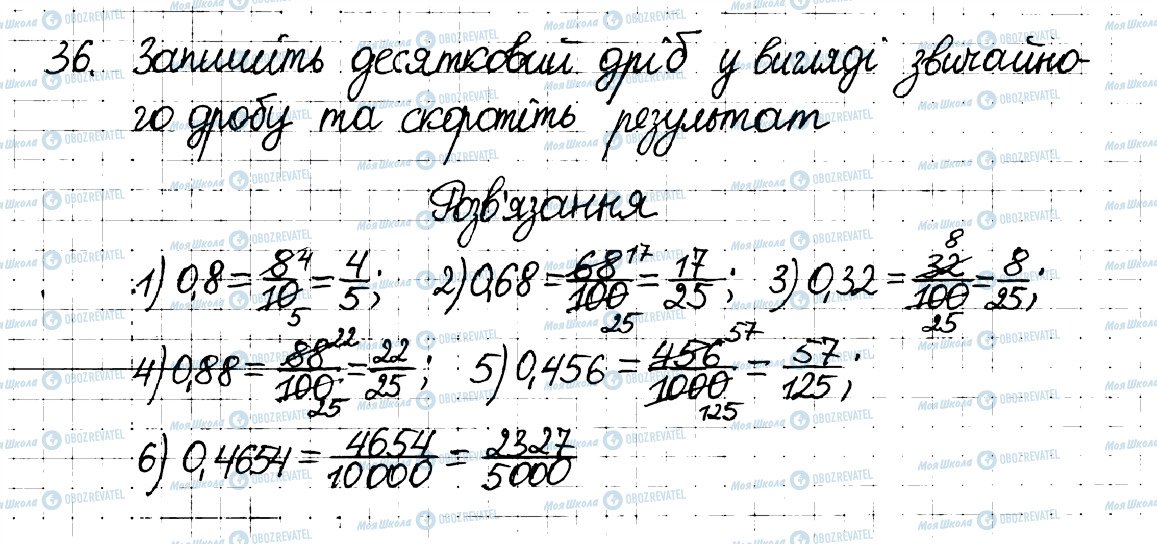 36. Запишіть десятковий дріб у вигляді звичайно-
го дробу та скоротіть результат
Розв'язання
1) 0,8 = 8/10 = 4/5; 2) 0,68 = 68/100 = 17/25; 3) 0,32 = 32/100 = 8/25;
4) 0,88 = 88/100 = 22/25; 5) 0,456 = 456/1000 = 57/125;
6) 0,4654 = 4654/10000 = 2327/5000
Моя Школа OBOZREVATEL